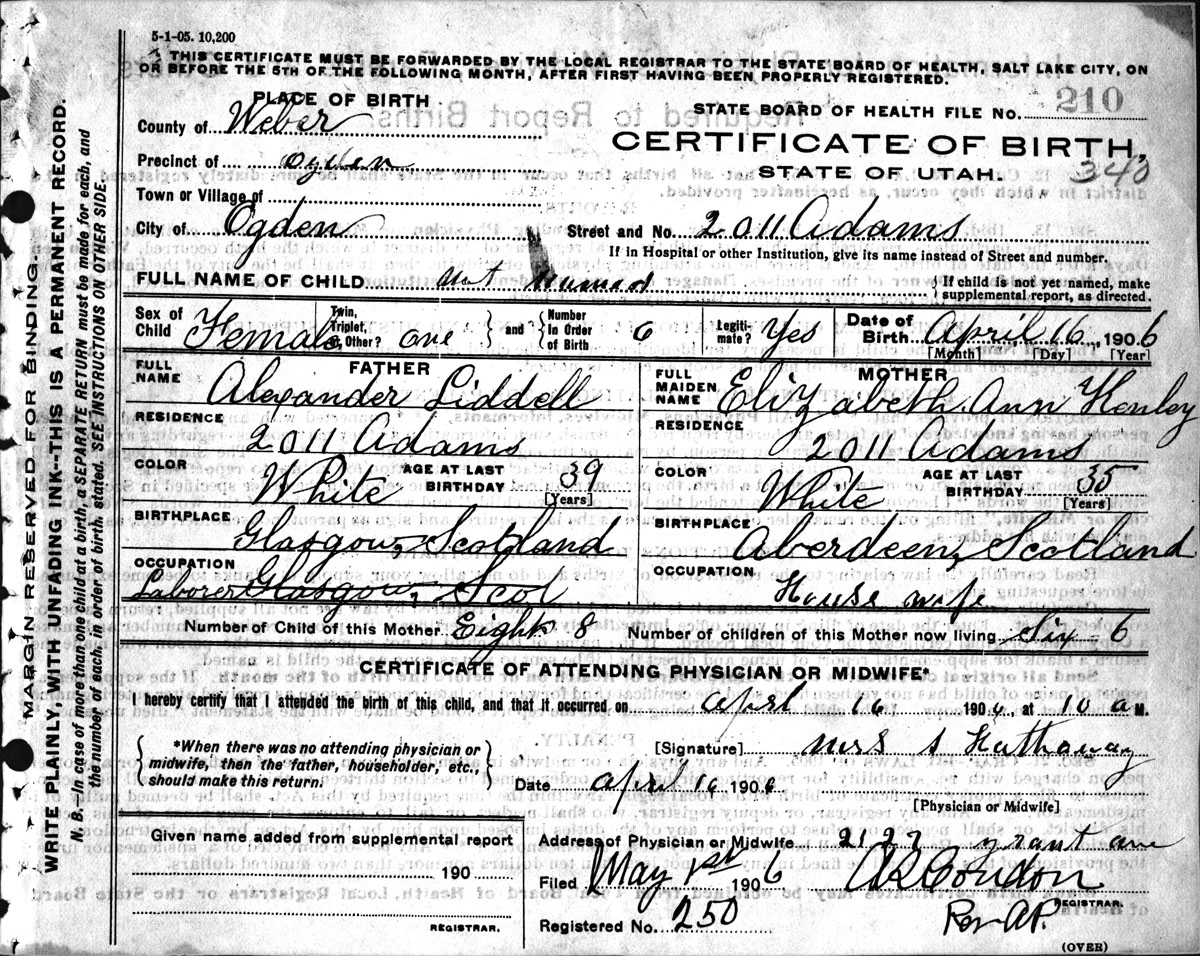 5-1-05. 10,200
THIS CERTIFICATE MUST BE FORWARDED BY THE LOCAL REGISTRAR TO THE STATE BOARD OF HEALTH, SALT LAKE CITY, ON
OR BEFORE THE 5TH OF THE FOLLOWING MONTH, AFTER FIRST HAVING BEEN PROPERLY REGISTERED.
PLACE OF BIRTH
STATE BOARD OF HEALTH FILE NO. 210
County of Weber
CERTIFICATE OF BIRTH,
Precinct of Ogden
STATE OF UTAH. 340
Town or Village of
City of Ogden
Street and No. 2011 Adams
If in Hospital or other Institution, give its name instead of Street and number.
FULL NAME OF CHILD not named
If child is not yet named, make supplemental report, as directed.
Sex of Child Female Twin, Triplet, or Other? one and Number In Order of Birth 6 Legitimate? Yes Date of Birth April 16, 1906
[Month] [Day] [Year]
FATHER
FULL NAME Alexander Liddell
RESIDENCE 2011 Adams
COLOR White AGE AT LAST BIRTHDAY 39
[Years]
BIRTHPLACE Glasgow, Scotland
OCCUPATION Laborer Glasgow, Scot
MOTHER
FULL MAIDEN NAME Elizabeth Ann Henley
RESIDENCE 2011 Adams
COLOR White AGE AT LAST BIRTHDAY 35
[Years]
BIRTHPLACE Aberdeen, Scotland
OCCUPATION House wife
Number of Child of this Mother Eight 8 Number of children of this Mother now living Six 6
CERTIFICATE OF ATTENDING PHYSICIAN OR MIDWIFE*
I hereby certify that I attended the birth of this child, and that it occurred on April 16 1906, at 10 a M.
*When there was no attending physician or
midwife, then the father, householder, etc.,
should make this return.
[Signature] Mrs S Hathaway
Date April 16 1906
[Physician or Midwife]
Given name added from supplemental report
190
REGISTRAR.
Address of Physician or Midwife 2127 Grant ave
Filed May 1st 1906 Condon
REGISTRAR.
Registered No. 250
(OVER)
MARGIN RESERVED FOR BINDING.
WRITE PLAINLY, WITH UNFADING INK--THIS IS A PERMANENT RECORD.
N. B.--In case of more than one child at a birth, a SEPARATE RETURN must be made for each, and
the number of each, in order of birth, stated. SEE INSTRUCTIONS ON OTHER SIDE.